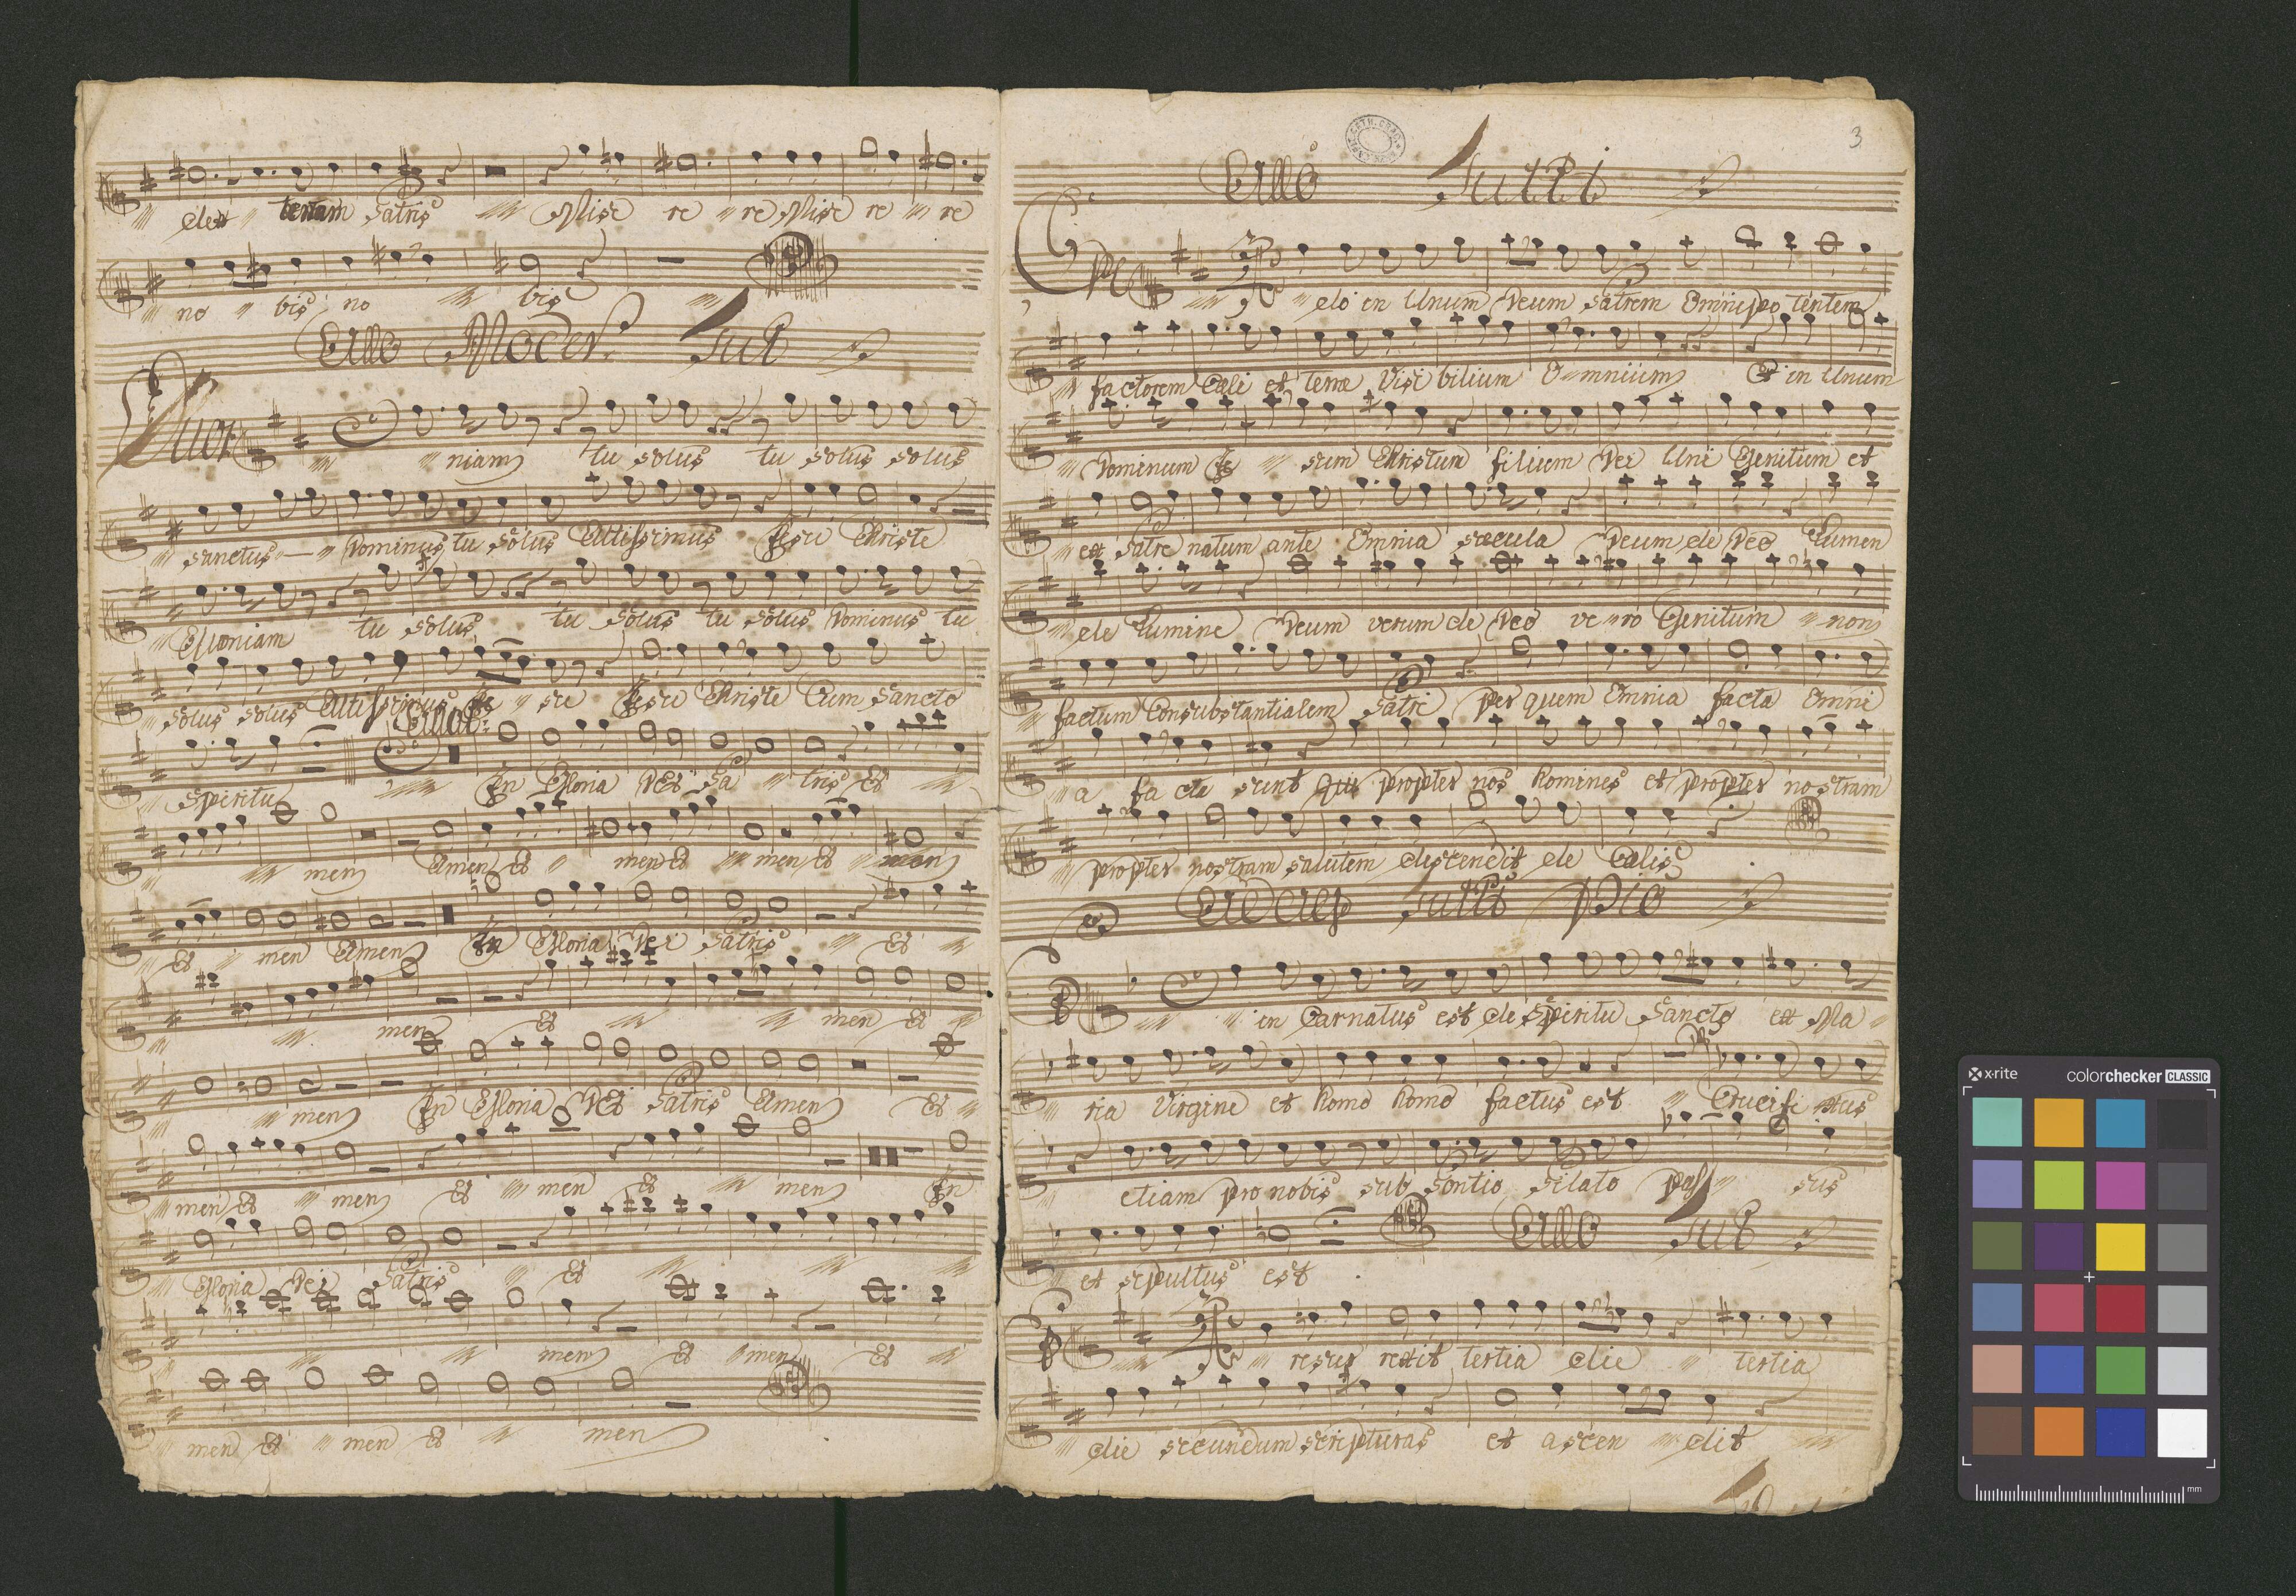 dex teram Patris Mise re re Mise re re
no bis no bis
Allo Moder. Tut
Quo niam tu solus tu solus solus
sanctus Dominus tu solus Altissimus Jesu Christe
Quoniam tu solus tu solus tu solus Dominus tu
solus solus Altissimus Je su Jesu Christe Cum Sancto
Allo:
Spiritu In Gloria Dei Pa tris A
men Amen A men A men A men
A men Amen In Gloria Dei Patris A
men A men A
men In Gloria Dei Patris Amen A
men A men A men A men In
Gloria Dei Patris A
men A men A
men A men A men
3
Allo Tutti
Cre do in Unum Deum Patrem Omnipo tentem
factorem Cæli et terræ Visi bilium O mnium Et in Unum
Dominum Je sum Christum filium Dei Uni Genitum et
ex Patre natum ante Omnia sæcula Deum de Deo Lumen
de Lumine Deum verum de Deo ve ro Genitum non
factum Consubstantialem Patri per quem Omnia facta Omni
a fa cta sunt Qui propter nos homines et propter nostram
propter nostram salutem descendit de Cælis
Adag Tutti Pio
Et in Carnatus est de Spiritu Sancto ex Ma
ria Virgine et homo homo factus est Crucifi xus
etiam pro nobis sub Pontio Pilato pas sus
et sepultus est
Allo Tut
Et resur rexit tertia die tertia
die secundum scripturas et ascen dit
x-rite
colorchecker CLASSIC
mm